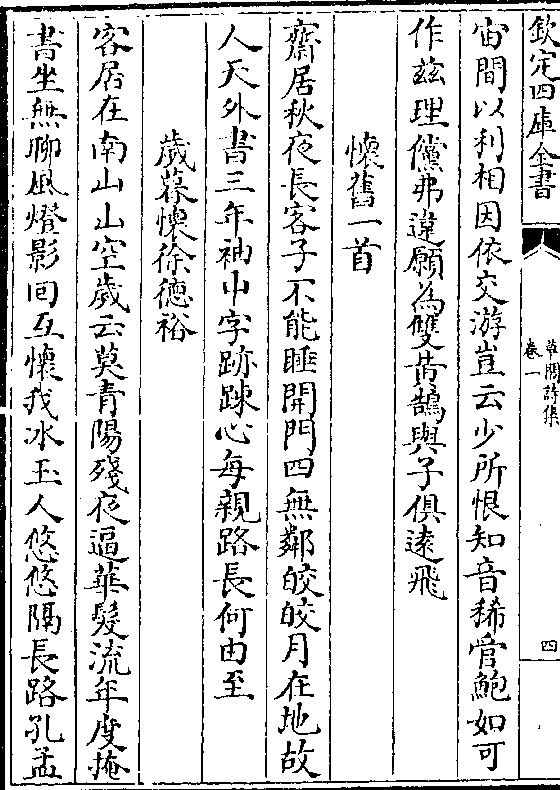 欽定四庫全書
草閣詩集
卷一
四
宙間以利相因依交游豈云少所恨知音稀管鮑如可
作茲理儻弗違願為雙黃鵠與子俱遠飛
懷舊一首
齋居秋夜長客子不能睡開門四無鄰皎皎月在地故
人天外書三年袖中字跡踈心每親路長何由至
歲暮懷徐德裕
客居在南山山空歲云莫青陽殘夜逼華髮流年度掩
書坐無聊風燈影回互懷我冰玉人悠悠隔長路孔孟